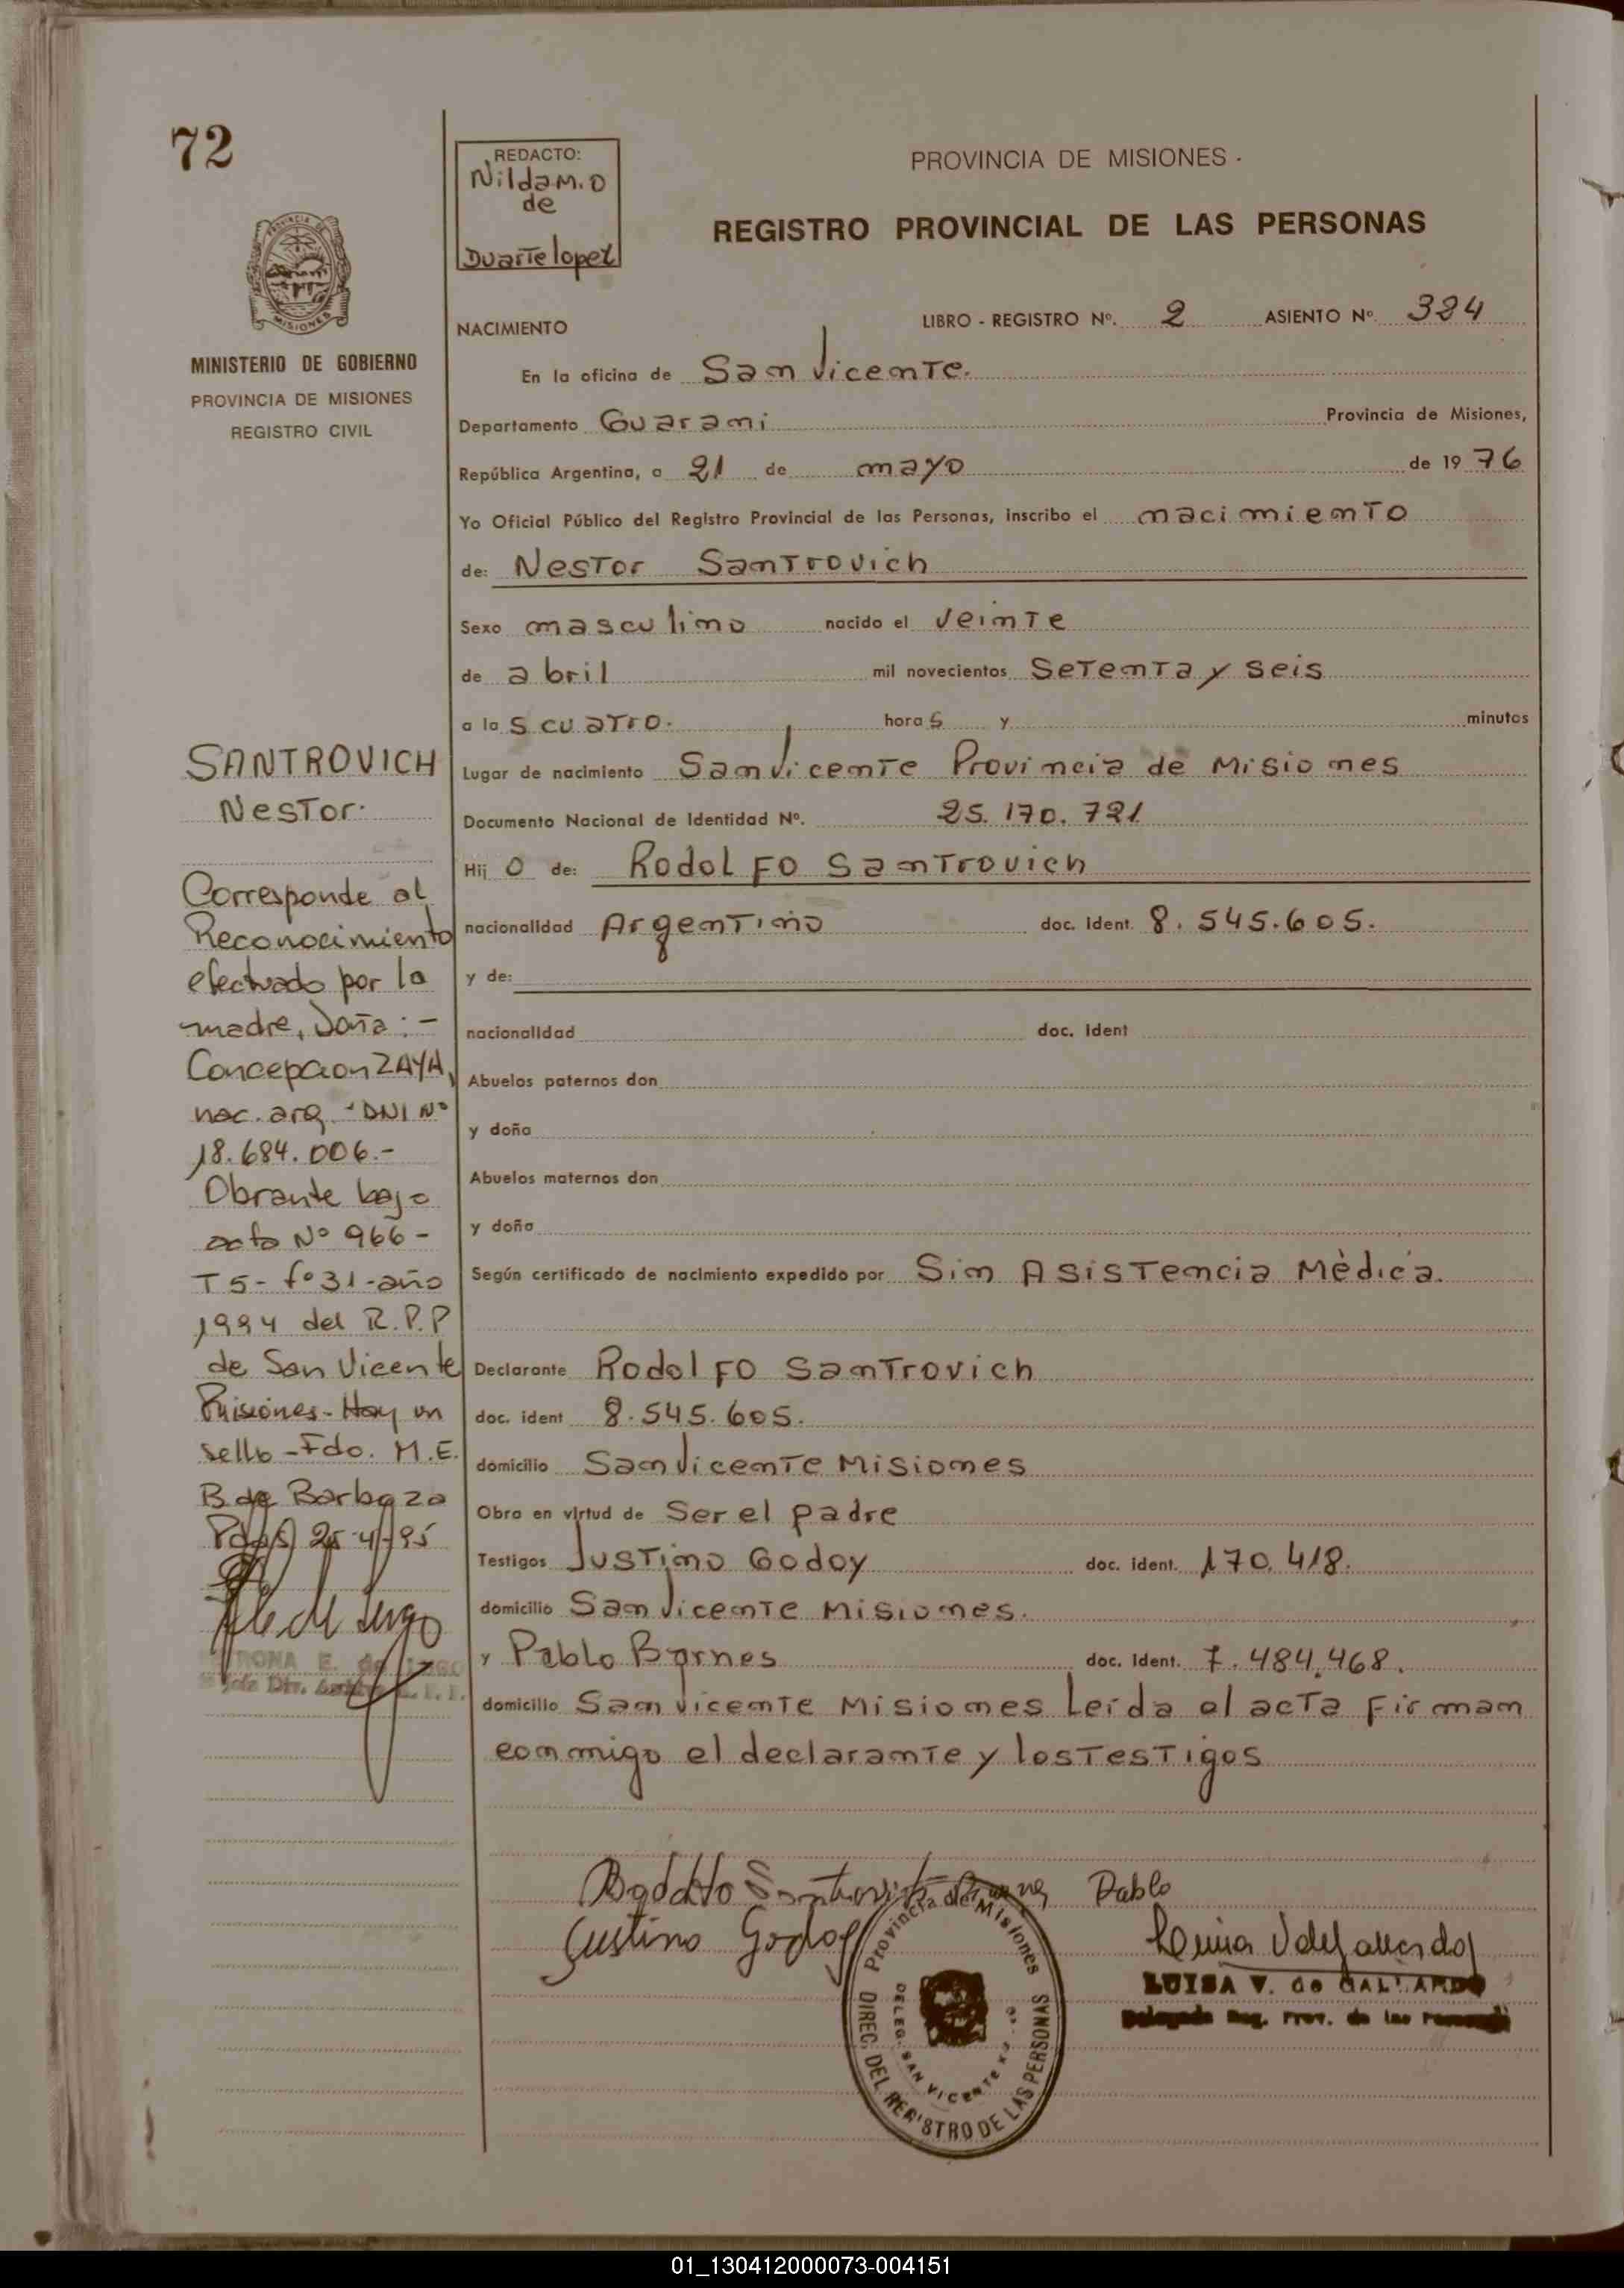 72
REDACTO:
Nilda M. O
de
Duarte lopez
PROVINCIA DE MISIONES.
REGISTRO PROVINCIAL DE LAS PERSONAS
MISIONES
MINISTERIO DE GOBIERNO
PROVINCIA DE MISIONES
REGISTRO CIVIL
NACIMIENTO
LIBRO - REGISTRO Nº. 2 ASIENTO Nº. 324
En la oficina de San Vicente.
Departamento Guarani Provincia de Misiones,
República Argentina, a 21 de mayo de 19 76
Yo Oficial Público del Registro Provincial de las Personas, inscribo el nacimiento
de: Nestor Santrovich
Sexo masculino nacido el veinte
de abril mil novecientos setenta y seis
a las cuatro. horas y minutos
Lugar de nacimiento San Vicente Provincia de Misiones
Documento Nacional de Identidad Nº. 25.170.721
Hijo de: Rodolfo Santrovich
nacionalidad Argentino doc. ident. 8.545.605.
y de:
nacionalidad doc. ident
Abuelos paternos don
y doña
Abuelos maternos don
y doña
Según certificado de nacimiento expedido por Sin Asistencia Mèdica.
Declarante Rodolfo Santrovich
doc. ident 8.545.605.
domicilio San Vicente Misiones
Obra en virtud de Ser el padre
Testigos Justino Godoy doc. ident. 170.418.
domicilio San Vicente Misiones.
y Pablo Bornes doc. ident. 7.484.468.
domicilio San Vicente Misiones Leída el acta firman
conmigo el declarante y los testigos
SANTROVICH
Nestor.
Corresponde al
Reconocimiento
efectuado por la
madre, Doña: -
Concepcion ZAYA,
nac. arg. - DNI Nº
18.684.006.-
Obrante bajo
acta Nº 966 -
T 5 - fº 31 - año
1994 del R.P.P
de San Vicente
Misiones - Hay un
sello - Fdo. M.E.
B de Barboza
Pdas) 25-4-95
Rodolfo Santrovich Pablo
Justino Godoy
LUISA V. de GALLARDO
Delegada Reg. Prov. de las Personas
Provincia de Misiones
DIREC. DEL REGISTRO DE LAS PERSONAS
DELEG. SAN VICENTE
01_130412000073-004151